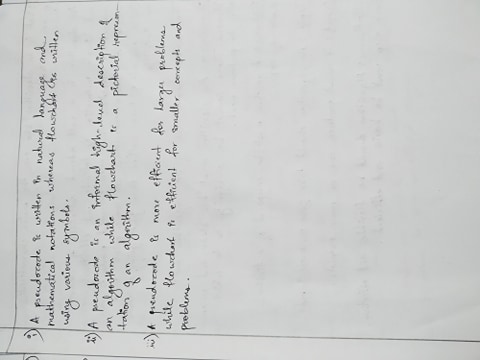 i) A pseudocode is written in natural language and
mathematical notations whereas flowchart is written
using various symbols.
ii) A pseudocode is an informal high-level description of
an algorithm while flowchart is a pictorial represen-
tation of an algorithm.
iii) A pseudocode is more efficient for larger problems
while flowchart is efficient for smaller concepts and
problems.